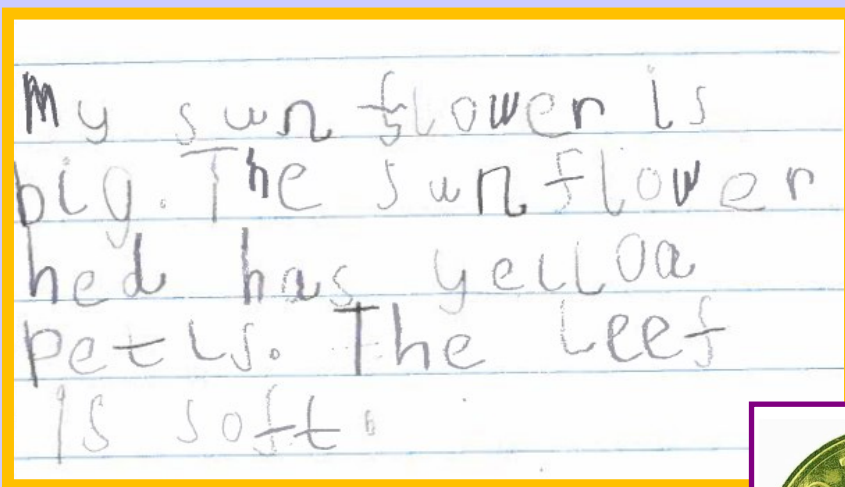 My sun flower is
big. The sunflower
hed has yelloa
petls. The leef
is soft.